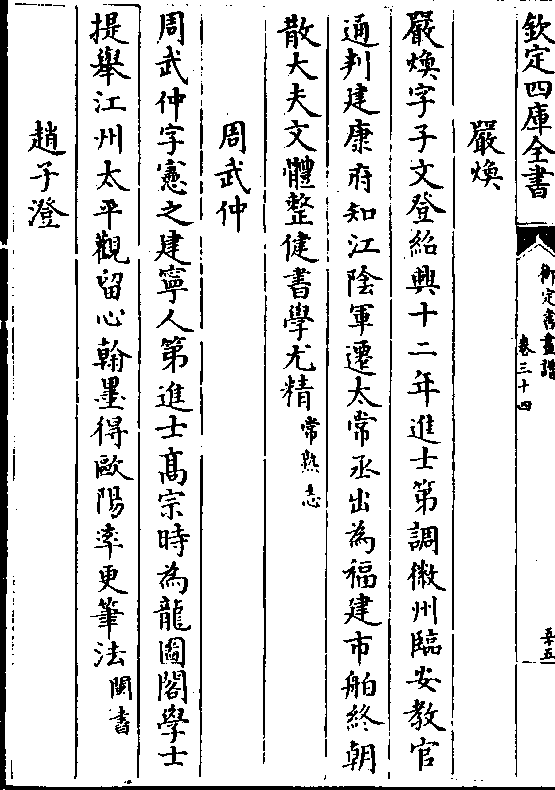 欽定四庫全書
御定書畫譜
卷三十四
嚴煥
嚴煥字子文登紹興十二年進士第調徽州臨安教官
通判建康府知江陰軍遷太常丞出為福建市舶終朝
散大夫文體整健書學尤精常熟志
周武仲
周武仲字憲之建寧人第進士髙宗時為龍圖閣學士
提舉江州太平觀留心翰墨得歐陽率更筆法閩書
趙子澄